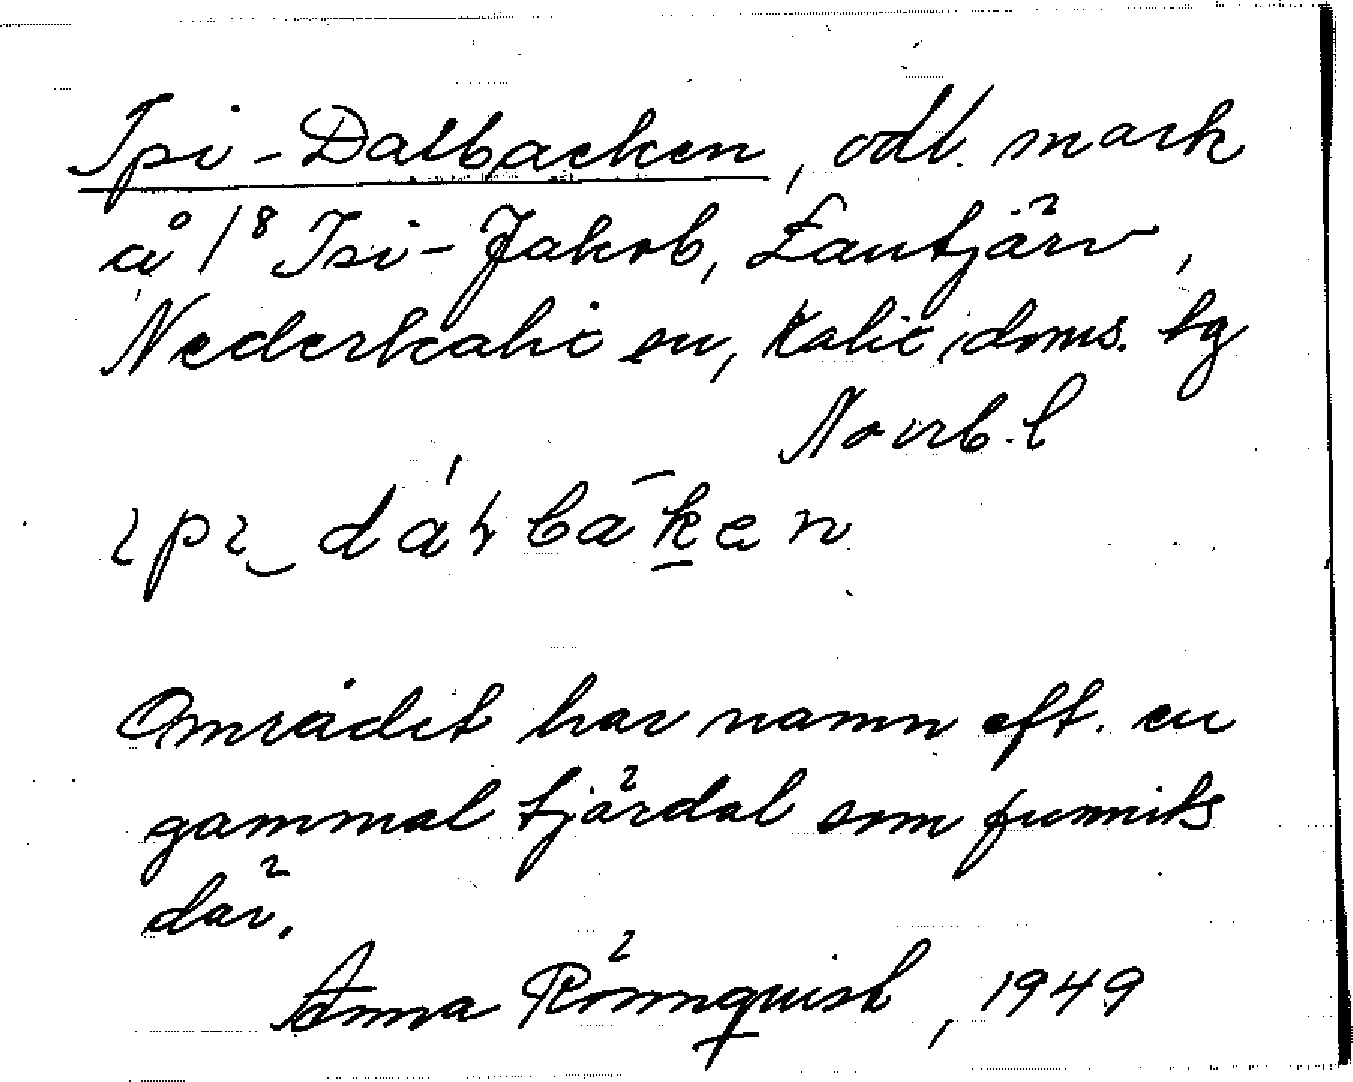 Ipi-Dalbacken, odl. mark
å 1⁸ Isi-Jakob, Lantjärv,
Nederkalix sn, Kalix doms. tg
Norrb. l
ipi dálbaken
Området har namn eft. en
gammal tjärdal som funnits
där.
Anna Rönnquist, 1949